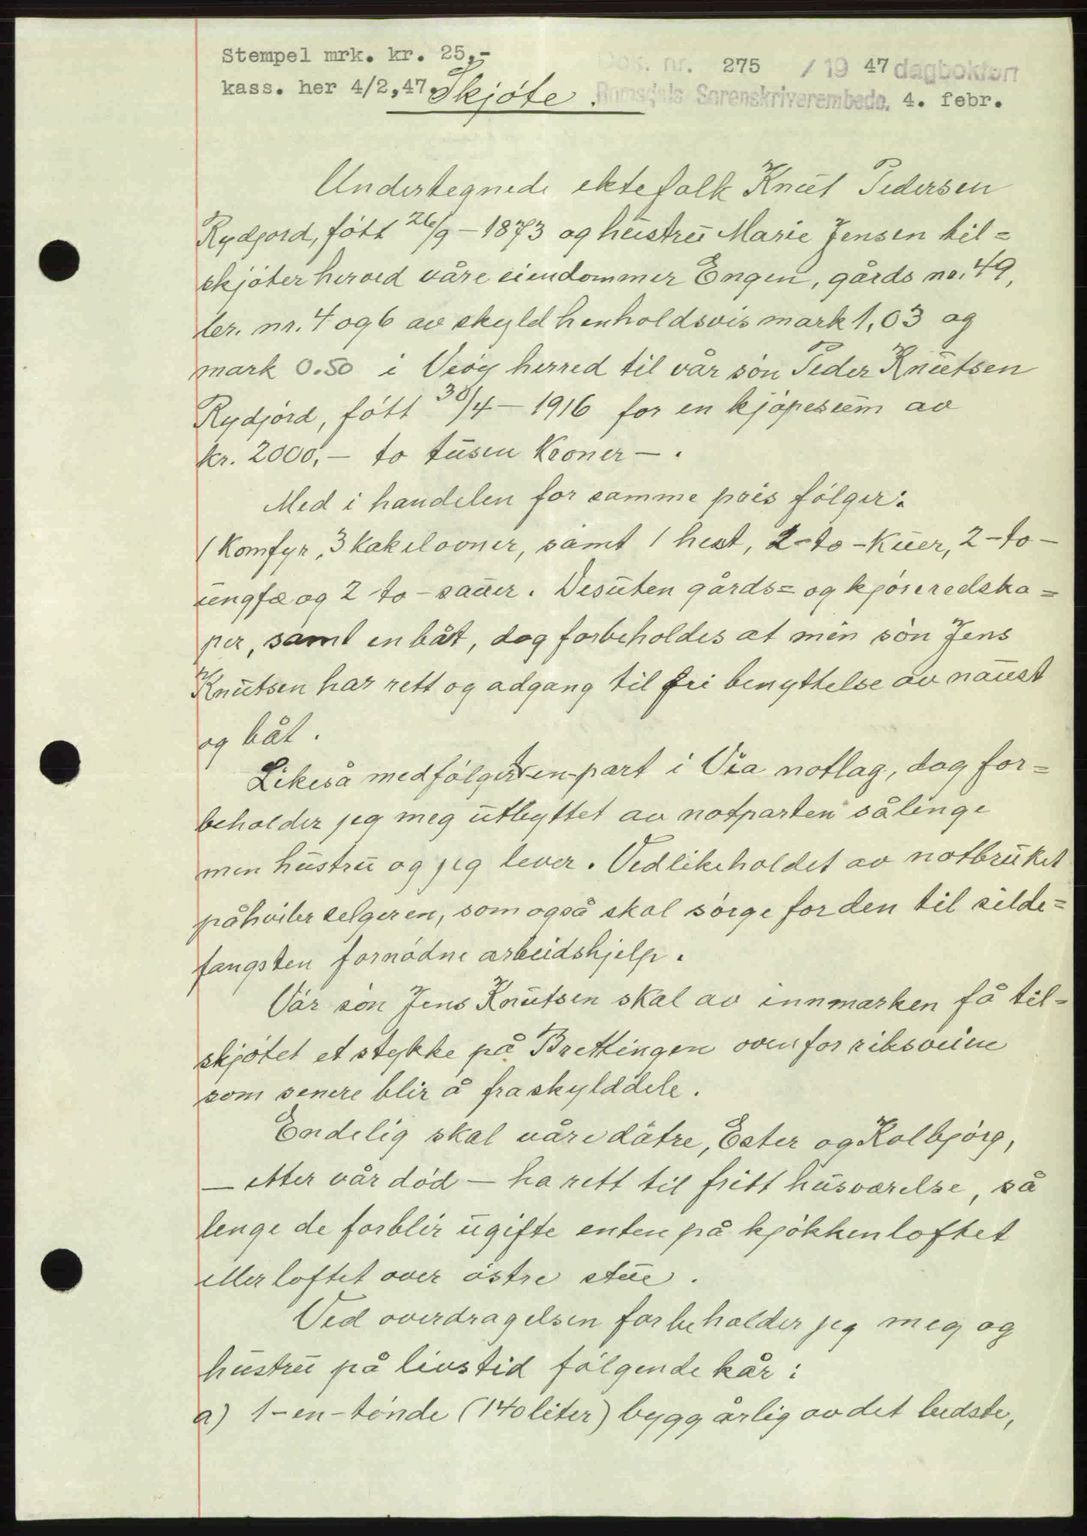 Stempel mrk. kr. 25,-
Dok. nr. 275 / 19 47 dagbokført
kass. her 4/2,47. Skjøte. Romsdals Sorenskriverembede, 4. febr.
Undertegnede ektefolk Knut Pedersen
Rydjord, født 26/9 – 1873 og hustru Marie Jensen til=
skjøter herved våre eiendommer Engen, gårds no. 49,
br. nr. 4 og 6 av skyld henholdsvis mark 1,03 og
mark 0.50 i Veøy herred til vår søn Peder Knutsen
Rydjord, født 30/4 – 1916 for en kjøpesum av
kr. 2000,– to tusen kroner – .
Med i handelen for samme pris følger:
1 komfyr, 3 kakelovner, samt 1 hest, 2-to-kuer, 2-to-
ungfæ og 2 to-sauer. Desuten gårds= og kjøreredska=
per, samt en båt, dog forbeholdes at min søn Jens
Knutsen har rett og adgang til fri benyttelse av naust
og båt.
Likeså medfølger 1-en-part i Via notlag, dog for=
beholder jeg meg utbyttet av notparten sålenge
men hustru og jeg lever. Vedlikeholdet av notbruket
påhviler selgeren, som også skal sørge for den til silde=
fangsten fornødne arbeidshjelp.
Vår søn Jens Knutsen skal av innmarken få til=
skjøtet et stykke på Brettingen ovenfor riksveiene
som senere blir å fraskylddele.
Endelig skal våre døtre, Ester og Kolbjørg,
– etter vår død – ha rett til fritt husværelse, så
lenge de forblir ugifte enten på kjøkkenloftet
eller loftet over østre stue.
Ved overdragelsen forbeholder jeg meg og
hustru på livstid følgende kår:
a) 1-en-tønde (140 liter) bygg årlig av det bedste,